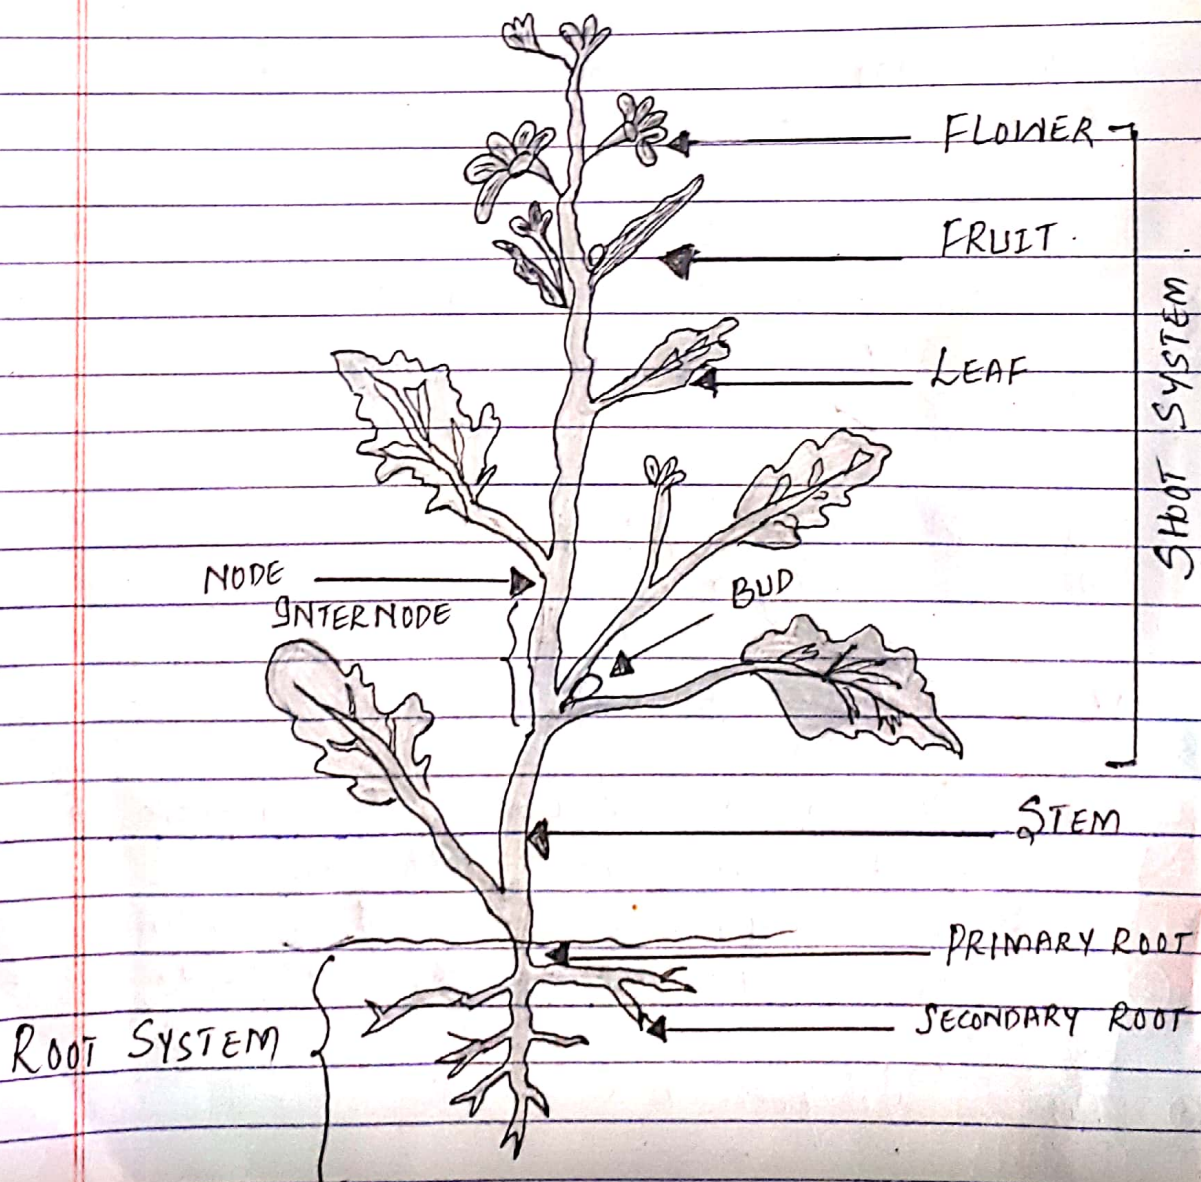 FLOWER
FRUIT
LEAF
SHOOT SYSTEM
NODE
INTERNODE
BUD
STEM
PRIMARY ROOT
SECONDARY ROOT
ROOT SYSTEM